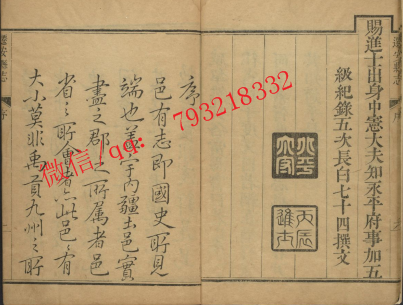 賜進士出身中憲大夫知永平府事加五
級紀錄五次長白七十四撰文
丙辰進士
序
邑有志即國史所見
端也蓋宇內疆土邑實
盡之郡之所属者邑
省之所會者亦此邑之有
大小莫非禹貢九州之所
遷安縣志
序
微信/qq: 793218332